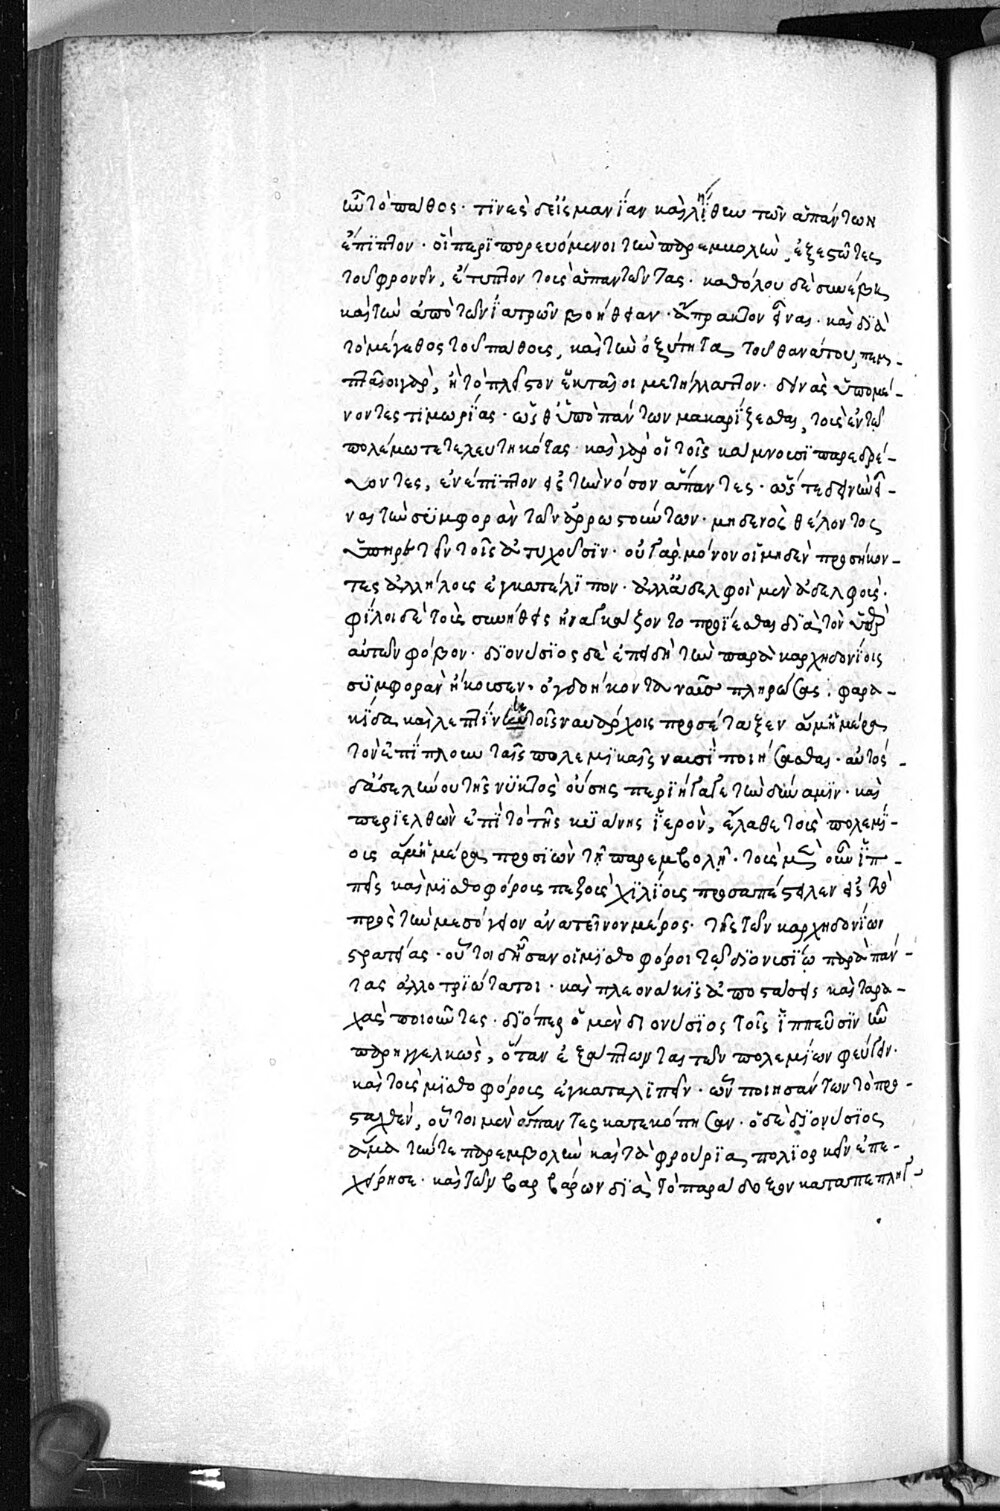 ὧν τὸ πάθος· τινὲς δ' εἰς μανίαν καὶ λήθην τῶν ἁπάντων
ἔπιπτον· οἳ περιπορευόμενοι τὴν παρεμβολὴν, ἐξεστῶτες
τοῦ φρονεῖν, ἔτυπτον τοὺς ἀπαντῶντας· καθόλου δὲ συνέβη
καὶ τὴν ἀπὸ τῶν ἰατρῶν βοήθειαν ἄπρακτον εἶναι· καὶ διὰ
τὸ μέγεθος τοῦ πάθους, καὶ τὴν ὀξύτητα τοῦ θανάτου, πεμ-
πταῖοι γὰρ, ἢ τὸ πλεῖστον ἑκταῖοι μετήλλαττον· δεινὰς ὑπομέ-
νοντες τιμωρίας· ὥσθ' ὑπὸ πάντων μακαρίζεσθαι, τοὺς ἐν τῷ
πολέμω τετελευτηκότας· καὶ γὰρ οἱ τοῖς κάμνουσι παρεδρεύ-
οντες, ἐνέπιπτον εἰς τὴν νόσον ἅπαντες· ὥστε δεινὴν εἶ-
ναι τὴν συμφορὰν τῶν ἀρρωστούντων· μηδενὸς θέλοντος
ὑπηρετεῖν τοῖς ἀτυχοῦσιν· οὐ γὰρ μόνον οἱ μηδὲν προσήκον-
τες ἀλλήλους ἐγκατέλιπον· ἀλλ' ἀδελφοὶ μὲν ἀδελφοὺς·
φίλοι δὲ τοὺς συνήθεις ἠναγκάζοντο προΐεσθαι διὰ τὸν ὑπὲρ
αὐτῶν φόβον· διονύσιος δὲ ἐπειδὴ τὴν παρὰ καρχηδονίοις
συμφορὰν ἤκουσεν· ὀγδοήκοντα ναῦς πληρώσας· φαρα-
κίδα καὶ λεπτίνῃ τοῖς ναυάρχοις προσέταξεν ἅμ' ἡμέρα
τὸν ἐπίπλουν ταῖς πολεμικαῖς ναυσὶ ποιήσασθαι· αὐτὸς
δ' ἀσελήνου τῆς νυκτὸς οὔσης περιήγαγε τὴν δύναμιν· καὶ
περιελθὼν ἐπὶ τὸ τῆς κυάνης ἱερὸν, ἔλαθε τοὺς πολεμί-
ους ἅμ' ἡμέρα προσιὼν τῇ παρεμβολῇ· τοὺς μὲν οὖν ἱπ-
πεῖς καὶ μισθοφόρους πεζοὺς χιλίους προσαπέστειλεν εἰς τὸ
πρὸς τὴν μεσόγειον ἀνατεῖνον μέρος· τῆς τῶν καρχηδονίων
στρατείας· οὗτοι δ' ἦσαν οἱ μισθοφόροι τῷ διονυσίῳ παρὰ πάν-
τας ἀλλοτριώτατοι· καὶ πλεονάκις ἀποστάσεις καὶ ταρα-
χὰς ποιοῦντες· διόπερ ὁ μὲν διονύσιος τοῖς ἱππεῦσιν ἦν
παρηγγελκὼς, ὅταν ἐξάπτωνται τῶν πολεμίων φεύγειν·
καὶ τοὺς μισθοφόρους ἐγκαταλιπεῖν· ὧν ποιησάντων τὸ προ-
σταχθὲν, οὗτοι μὲν ἅπαντες κατεκόπησαν· ὁ δὲ διονύσιος
ἅμα τήν τε παρεμβολὴν καὶ τὰ φρούρια πολιορκεῖν ἐπε-
χείρησε· καὶ τῶν βαρβάρων διὰ τὸ παράδοξον καταπεπληγ-